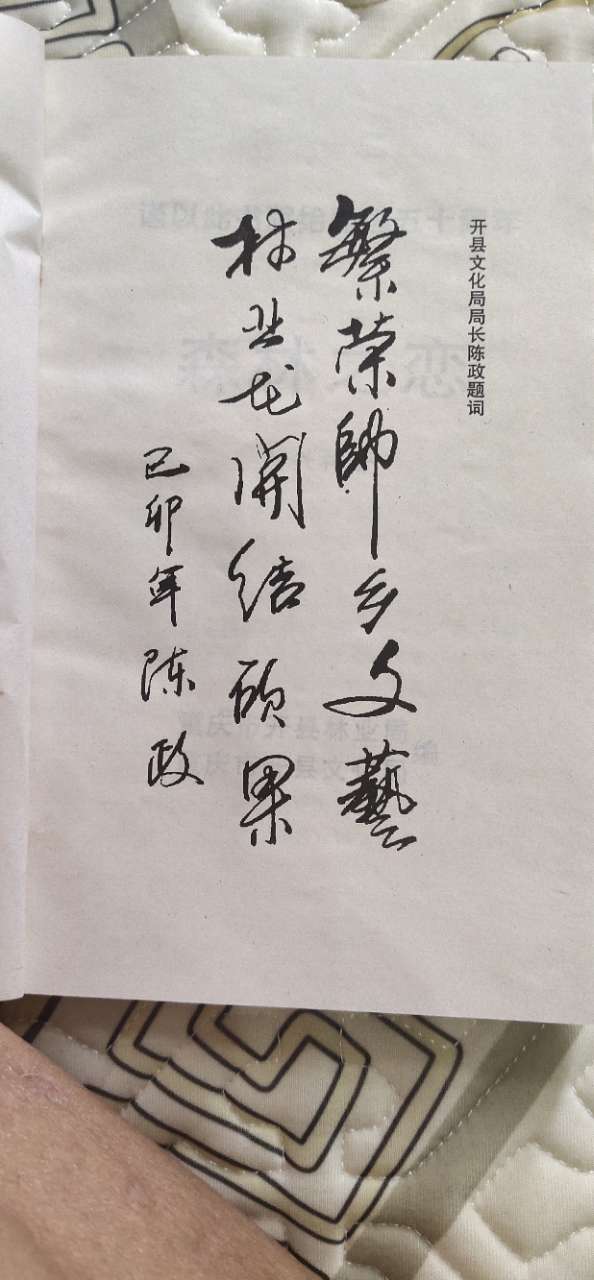 开县文化局局长陈政题词
繁荣帥乡文藝
林业花開结硕果
己卯年陈政